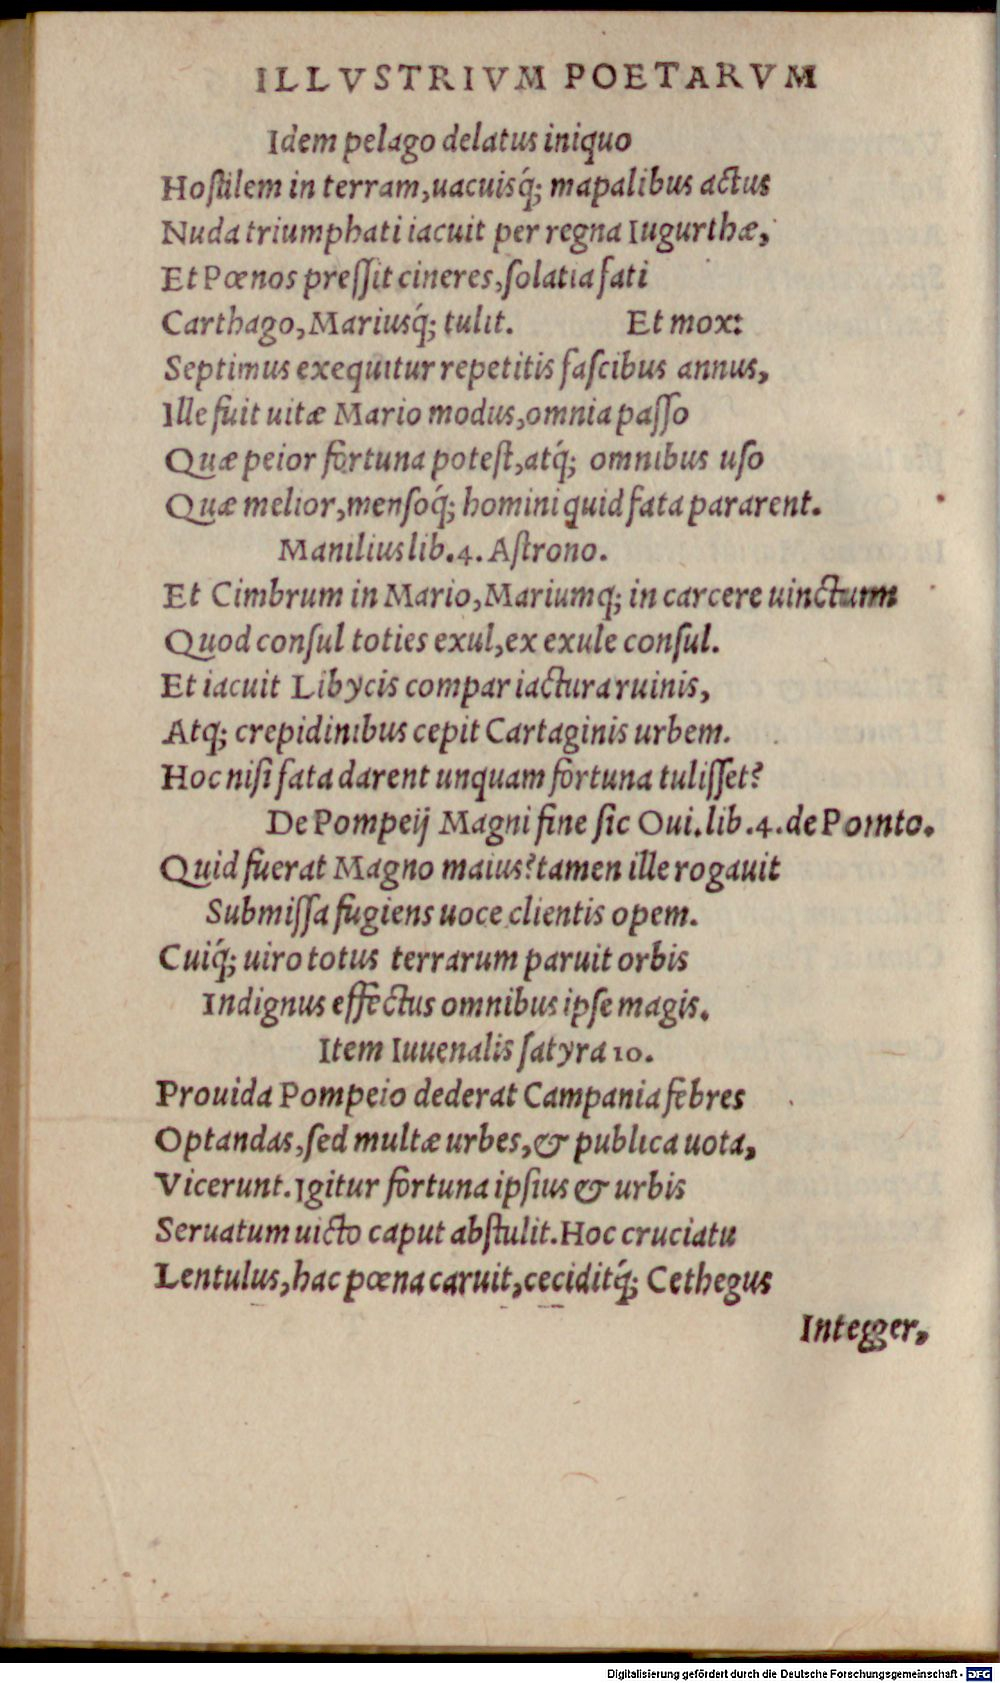 ILLVSTRIVM POETARVM
Idem pelago delatus iniquo
Hostilem in terram, uacuisq́; mapalibus actus
Nuda triumphati iacuit per regna Iugurthæ,
Et Pœnos preſſit cineres, ſolatia fati
Carthago, Mariusq́; tulit. Et mox:
Septimus exequitur repetitis faſcibus annus,
Ille fuit uitæ Mario modus, omnia paſſo
Quæ peior fortuna poteſt, atq́; omnibus uſo
Quæ melior, menſoq́; homini quid fata pararent.
Manilius lib. 4. Aſtrono.
Et Cimbrum in Mario, Mariumq; in carcere uinctum
Quod conſul toties exul, ex exule conſul.
Et iacuit Libycis compar iactura ruinis,
Atq; crepidinibus cepit Cartaginis urbem.
Hoc niſi fata darent unquam fortuna tuliſſet?
De Pompeij Magni fine ſic Oui. lib. 4. de Pomto.
Quid fuerat Magno maius? tamen ille rogauit
Submiſſa fugiens uoce clientis opem.
Cuiq́; uiro totus terrarum paruit orbis
Indignus effectus omnibus ipſe magis.
Item Iuuenalis ſatyra 10.
Prouida Pompeio dederat Campania febres
Optandas, ſed multæ urbes, & publica uota,
Vicerunt. Igitur fortuna ipſius & urbis
Seruatum uicto caput abſtulit. Hoc cruciatu
Lentulus, hac pœna caruit, ceciditq́; Cethegus
Integger,
Digitalisierung gefördert durch die Deutsche Forschungsgemeinschaft - DFG